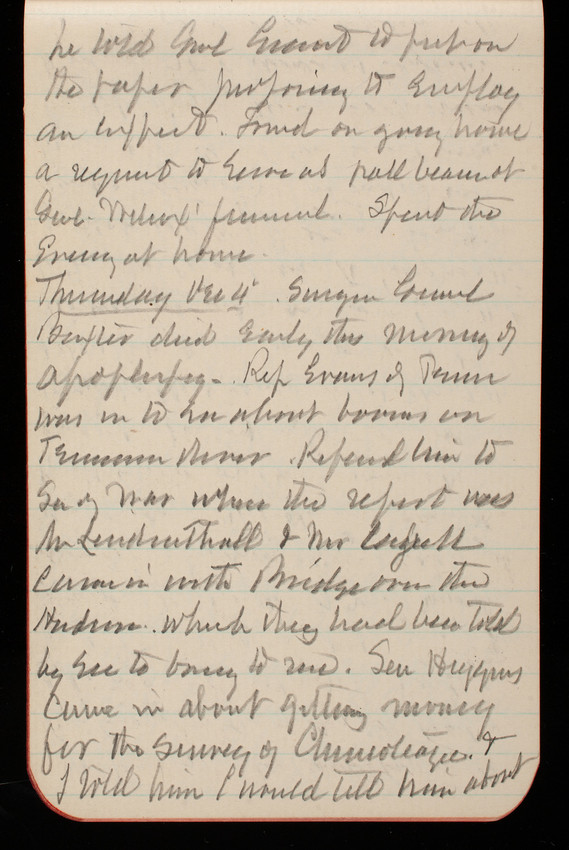 he told Genl Grant to put on
the paper proposing to Employ
an expert. Found on going home
a request to serve as pall bearer at
Genl. Wilcox' funeral. Spent the
Evening at home.
Thursday Dec 4. Surgeon Genrl
Baxter died Early this morning of
apoplexy. Rep Evans of Tenn
was in to see about booms on
Tennessee River. Refered him to
Sec of War where the report was
Mr Lindenthall & Mr
Came in with Bridge over the
Hudson. which they had been told
by Sec to bring to me. Sen Higgins
Came in about getting money
for the survey of &
I told him I would tell him about